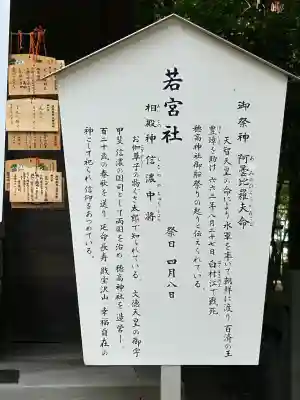 若宮社
御祭神 阿曇比羅夫命
天智天皇の命により水軍を率いて朝鮮に渡り百済の王
豊璋を助け六六三年八月二十七日白村江で戦死
穂高神社御船祭りの起りと伝えられている。
祭日 四月八日
相殿神 信濃中将
お伽草子の物ぐさ太郎で知られている。文徳天皇の御宇
甲斐信濃の国司として両国を治め穂高神社を造営し、
百二十歳の春秋を送り延命長寿 殿堂沢山 幸福自在の
神として祀られ信仰をあつめている。